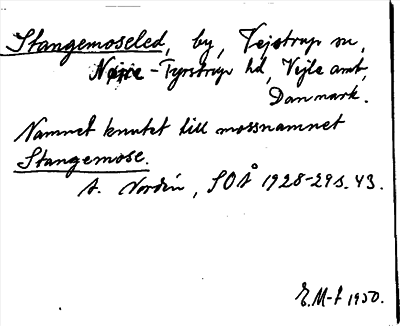 Stangemoseled, by, Vejstrup sn,
Nørre-Tyrstrup hd, Vejle amt,
Danmark.
Namnet knutet till mossnamnet
Stangemose.
A. Nordén, SOÅ 1928-29 s. 43.
E.M-t 1950.